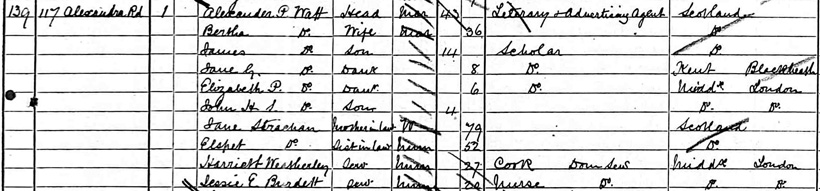 139 117 Alexandra Rd 1 Alexander P. Watt Head Mar 43 Literary & Advertising Agent Scotland
Bertha Do. Wife Mar 36 Do.
James Do. Son 14 Scholar Do.
Jane G. Do. Daur 8 Do. Kent Blackheath
Elizabeth P. Do. Daur. 6 Do. Middx London
John H. S. Do. Son 4 Do. Do.
Jane Strachan Mother in law W 79 Scotland
Elspet Do. Sist in law Unm 52 Do.
Harriett Weatherley Serv Unm 27 Cook Dom Serv Middx London
Jessie E. Burdett Serv Unm Nurse Do. Do. Do.